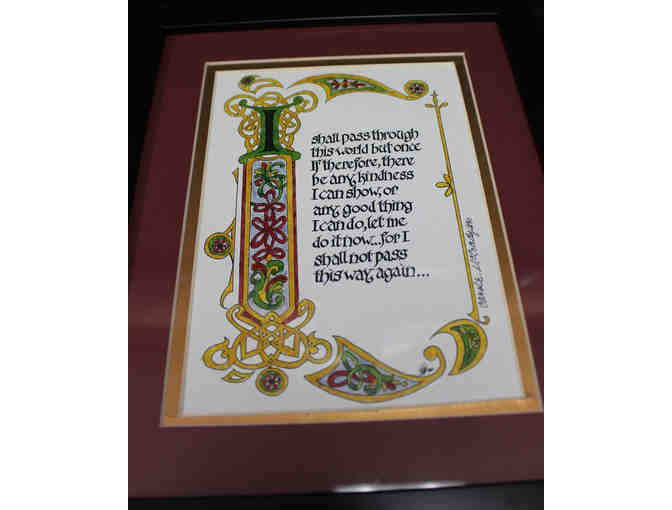 I
shall pass through
this world but once
If therefore, there
be any kindness
I can show, or
any good thing
I can do, let me
do it now...for I
shall not pass
this way again...